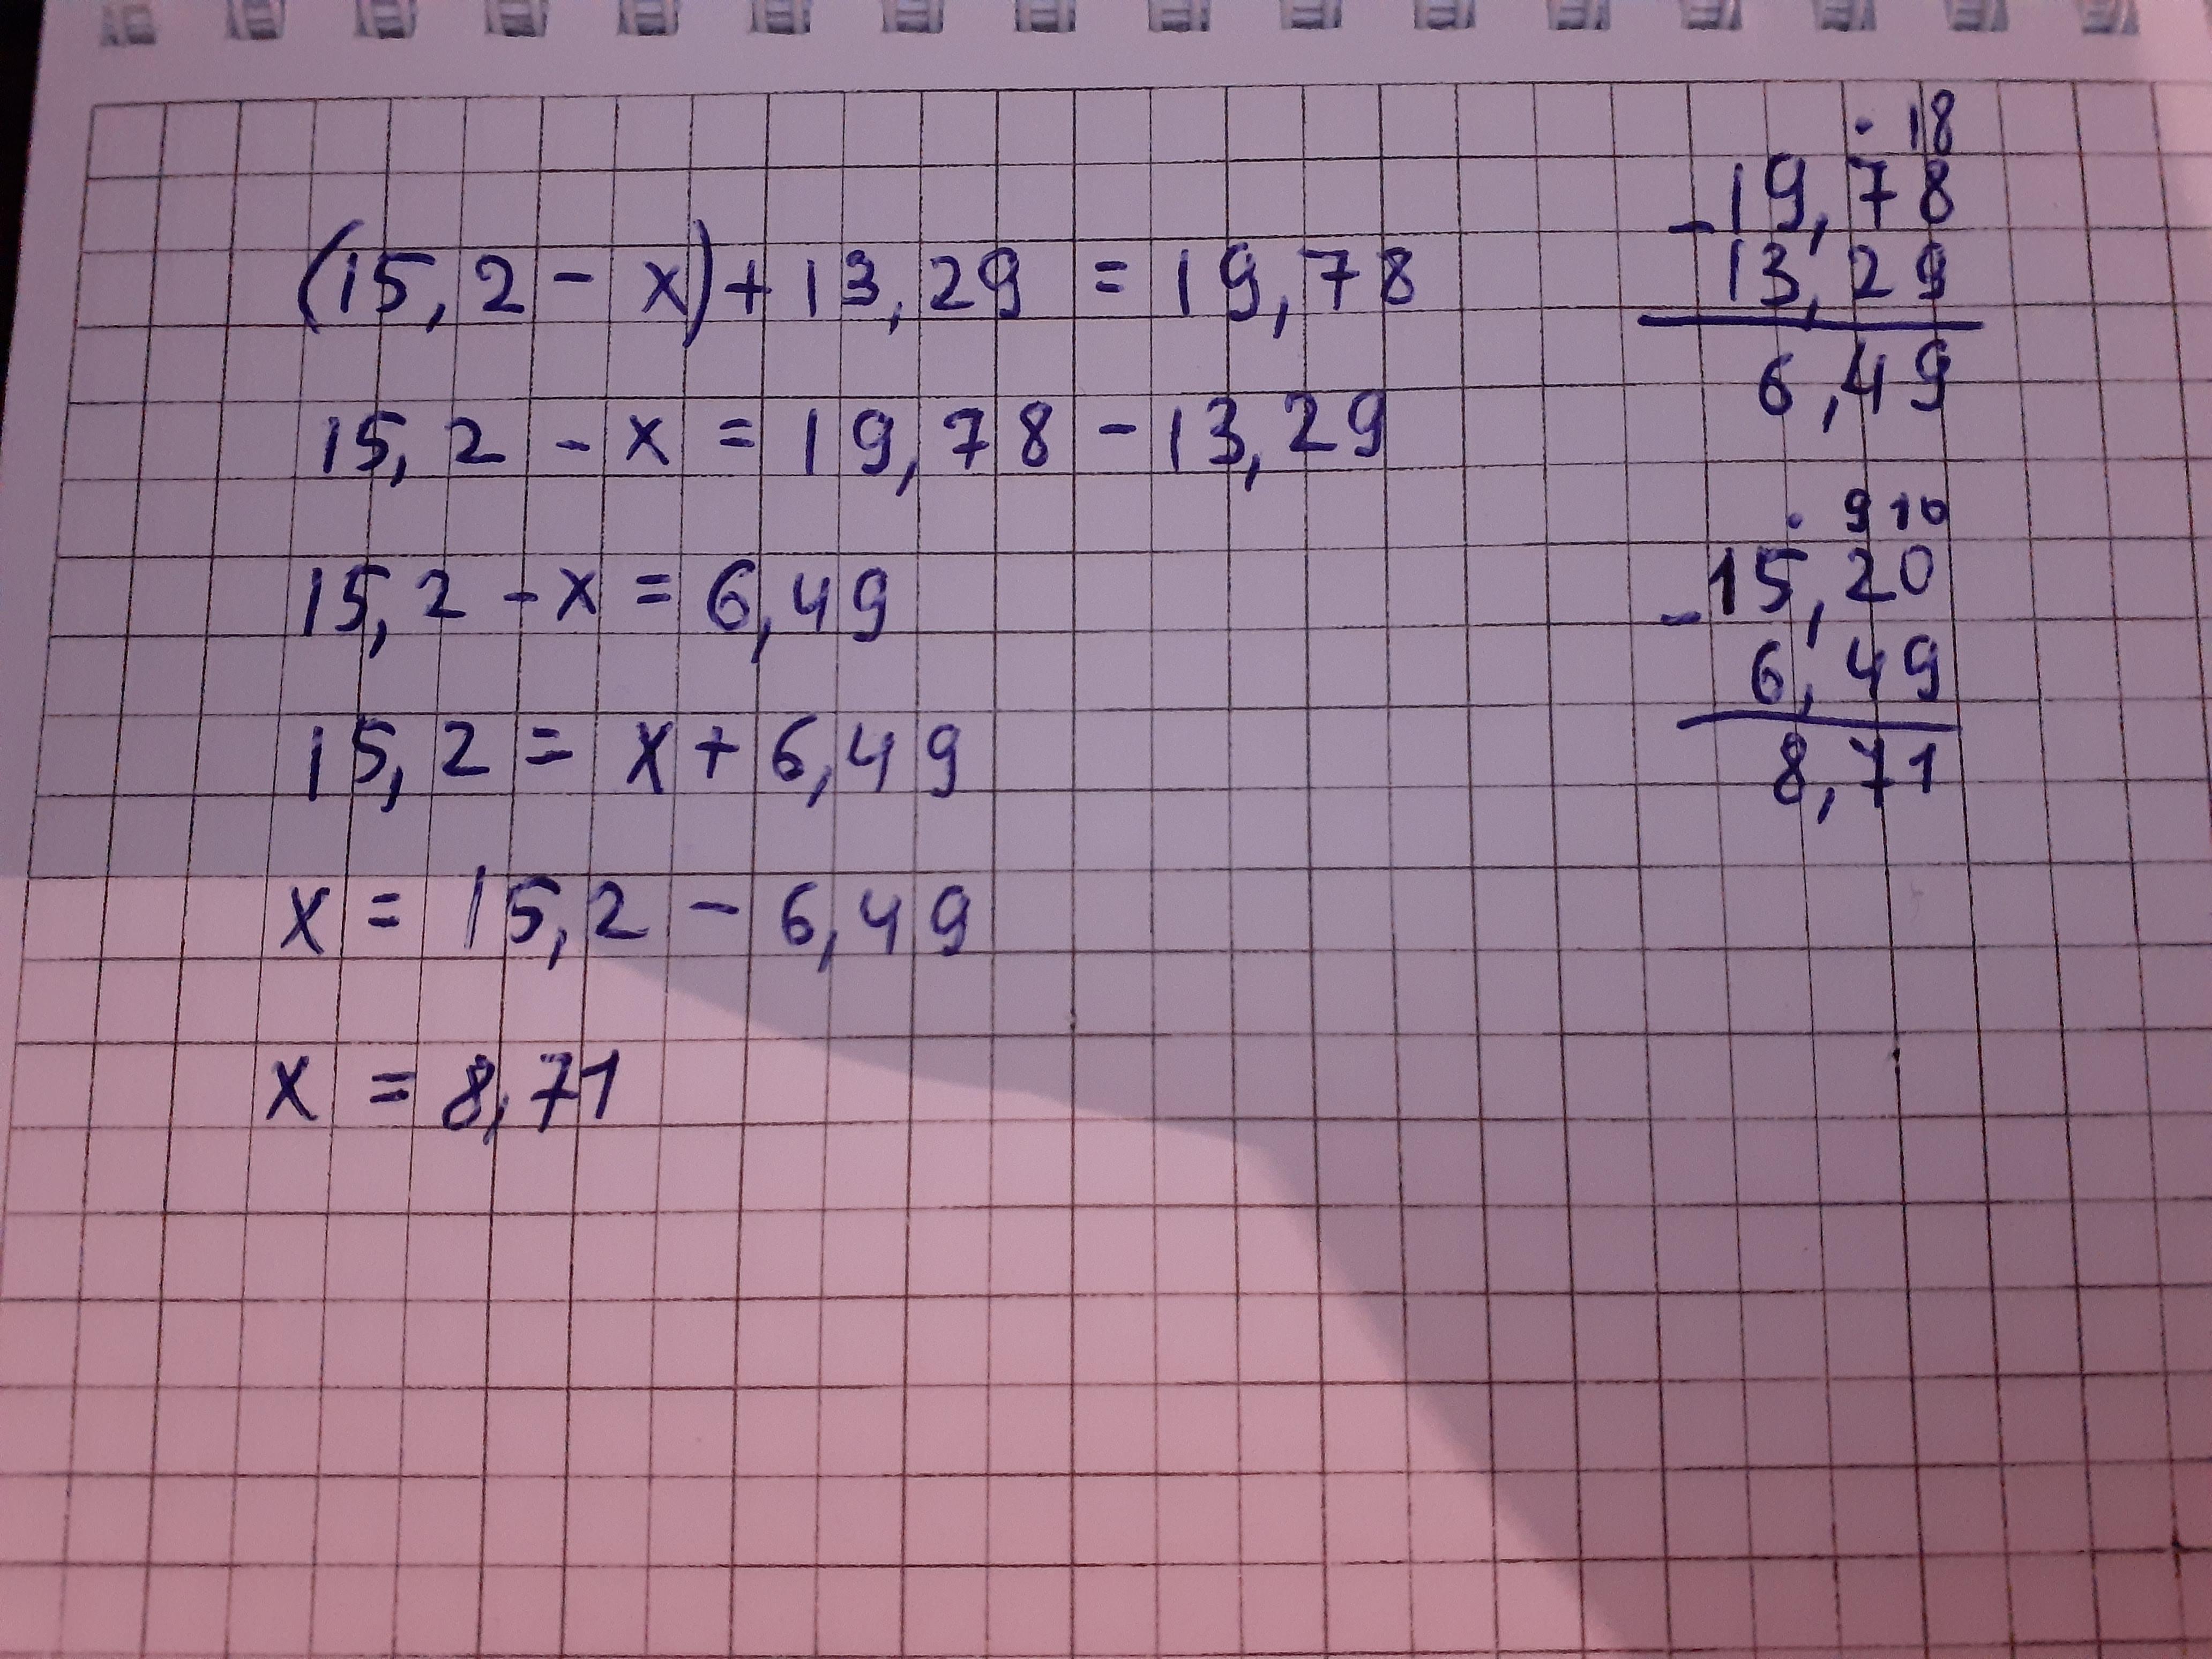 (15,2 - x) + 13,29 = 19,78
15,2 - x = 19,78 - 13,29
15,2 - x = 6,49
15,2 = x + 6,49
x = 15,2 - 6,49
x = 8,71
. 18
- 19,78
13,29
6,49
. 9 10
- 15,20
6,49
8,71